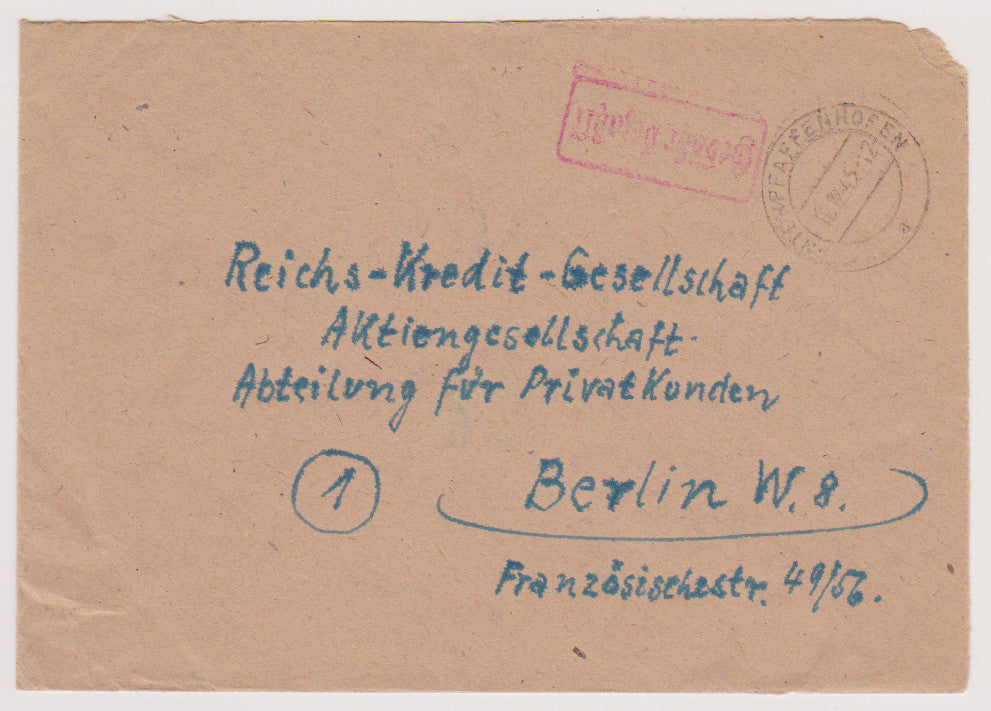 Gebühr bezahlt
UNTERPFAFFENHOFEN
45-12
Reichs-Kredit-Gesellschaft
Aktiengesellschaft.
Abteilung für Privatkunden
1
Berlin W. 8.
Französischestr. 49/56.